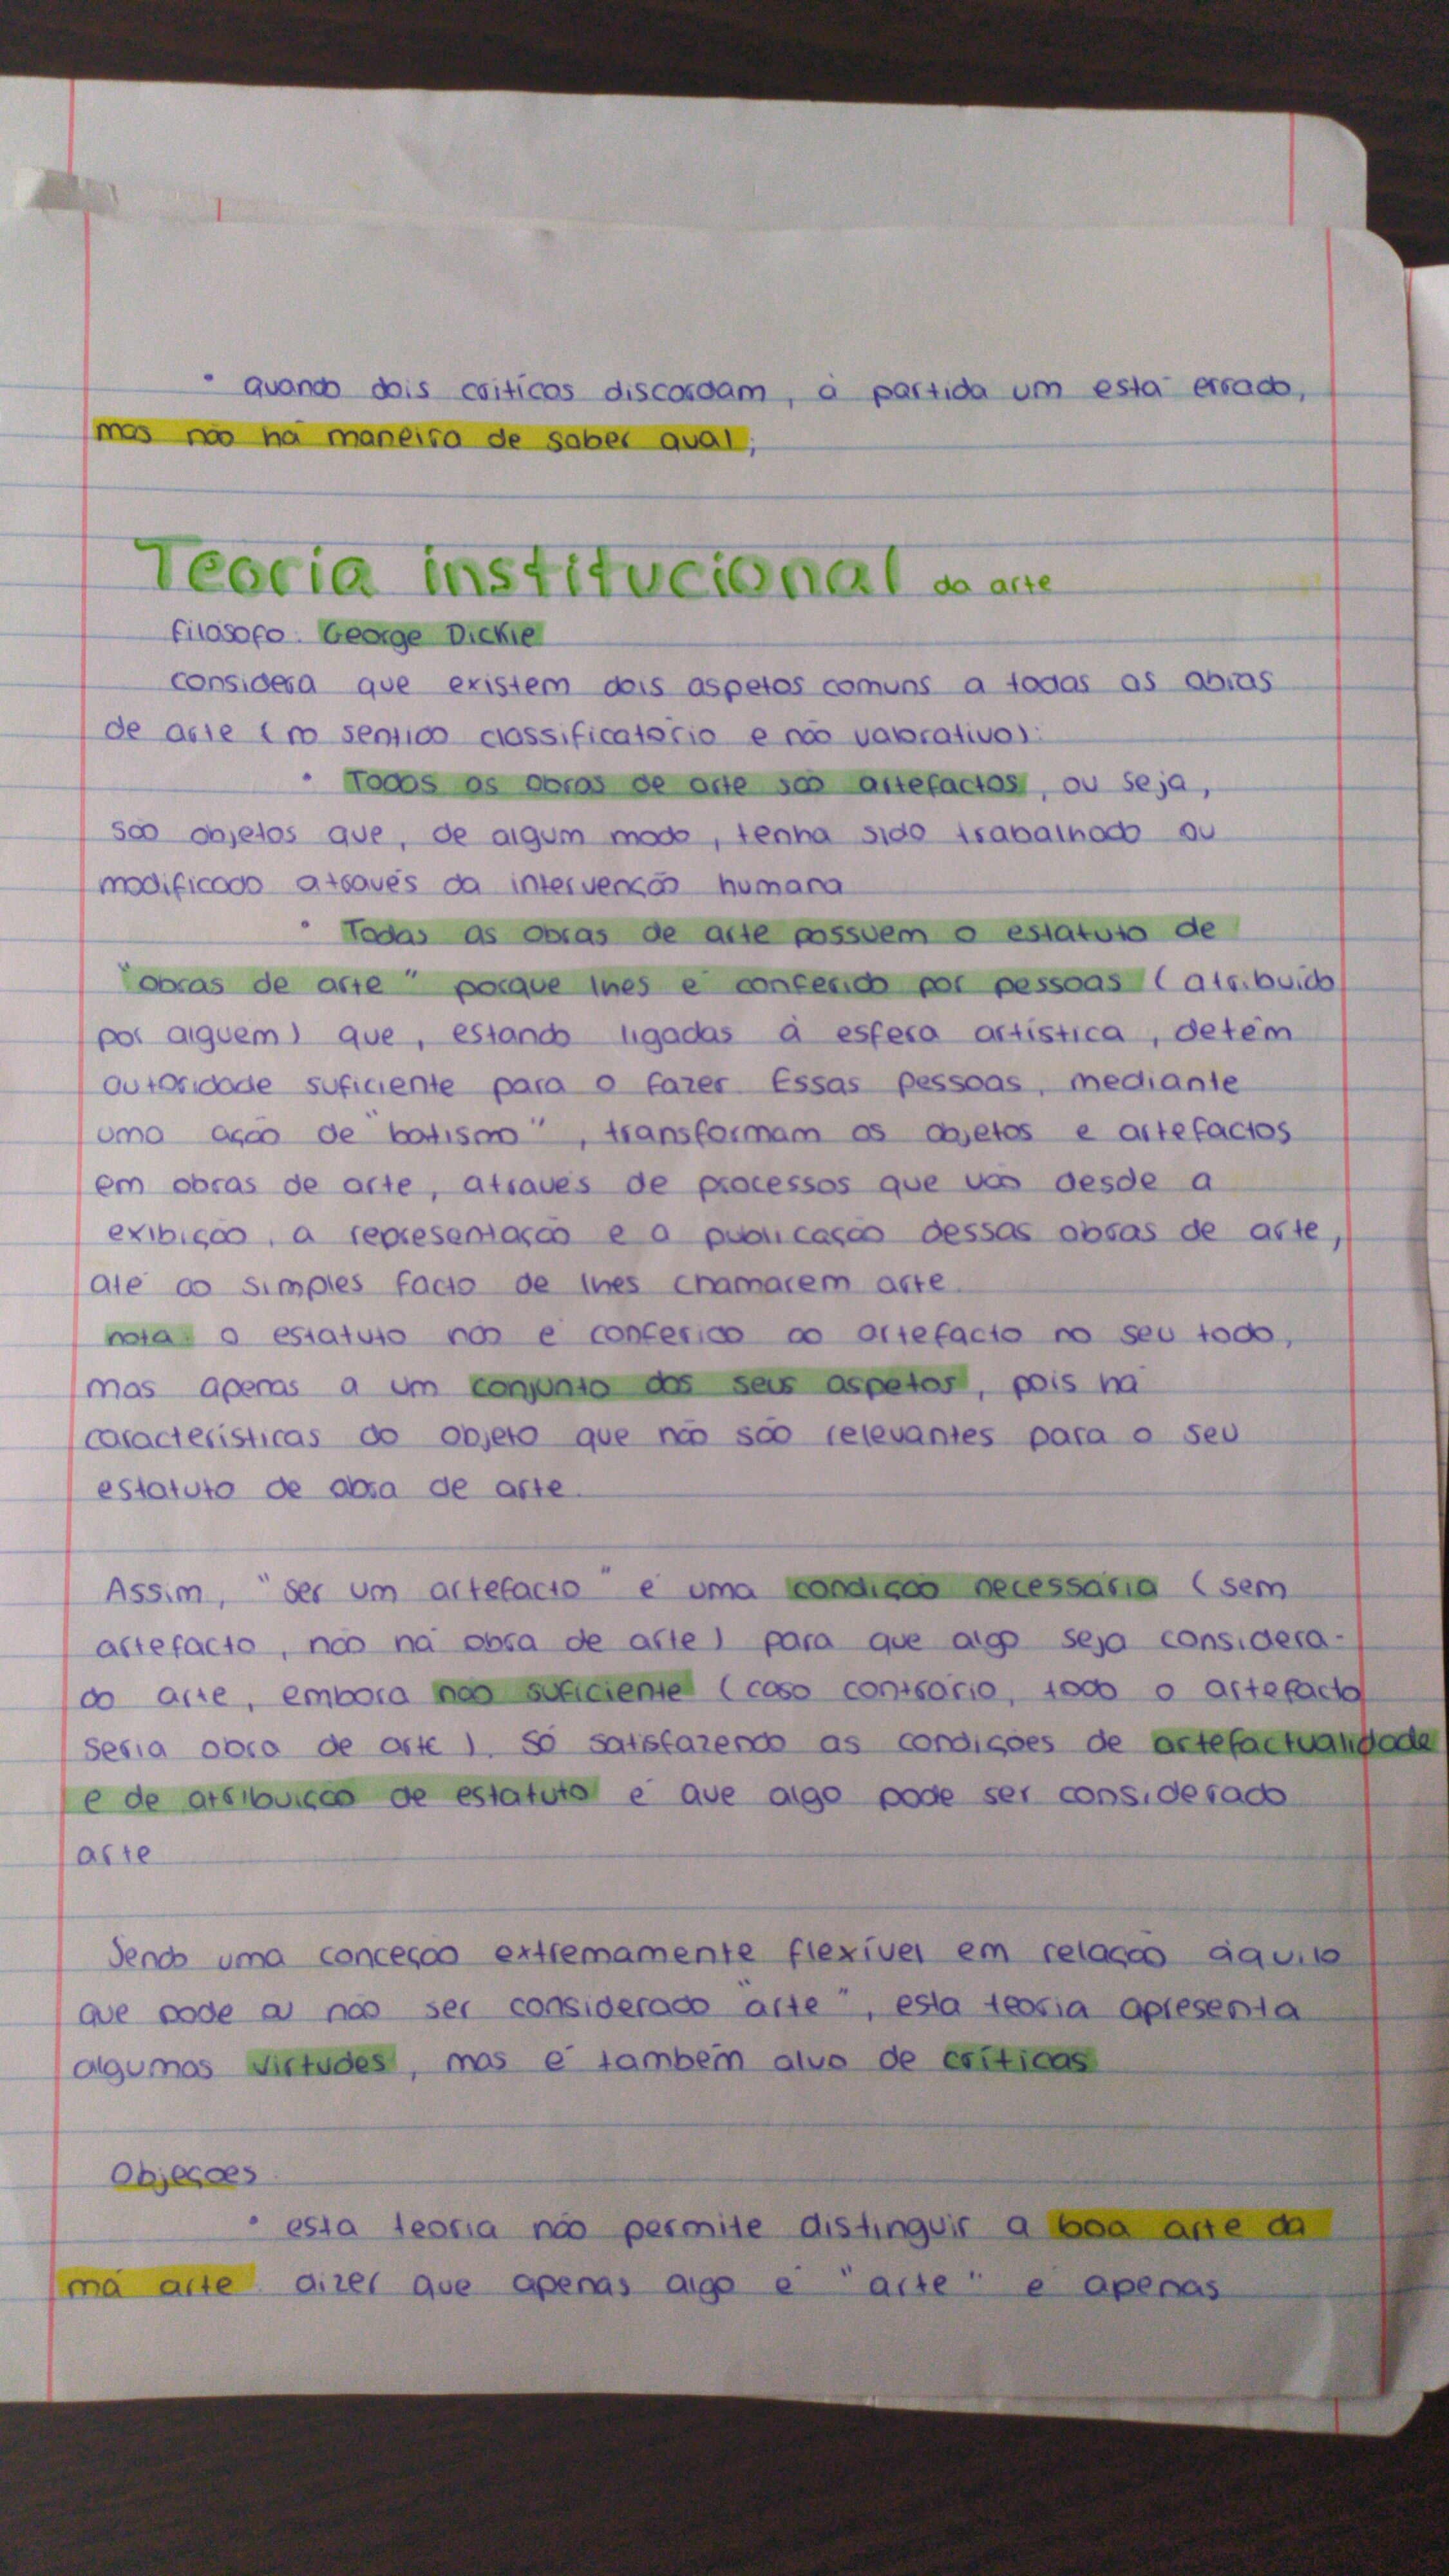 • quando dois críticos discordam, à partida um está errado,
mas não há maneira de saber qual;
Teoria institucional da arte
filósofo: George Dickie
considera que existem dois aspetos comuns a todas as obras
de arte (no sentido classificatório e não valorativo):
• Todas as obras de arte são artefactos, ou seja,
são objetos que, de algum modo, tenha sido trabalhado ou
modificado através da intervenção humana
• Todas as obras de arte possuem o estatuto de
"obras de arte" porque lhes é conferido por pessoas (atribuído
por alguém) que, estando ligadas à esfera artística, detêm
autoridade suficiente para o fazer. Essas pessoas, mediante
uma ação de "batismo", transformam os objetos e artefactos
em obras de arte, através de processos que vão desde a
exibição, a representação e a publicação dessas obras de arte,
até ao simples facto de lhes chamarem arte.
nota: o estatuto não é conferido ao artefacto no seu todo,
mas apenas a um conjunto dos seus aspetos, pois há
características do objeto que não são relevantes para o seu
estatuto de obra de arte.
Assim, "ser um artefacto" é uma condição necessária (sem
artefacto, não há obra de arte) para que algo seja considera-
do arte, embora não suficiente (caso contrário, todo o artefacto
seria obra de arte). Só satisfazendo as condições de artefactualidade
e de atribuição de estatuto é que algo pode ser considerado
arte
Sendo uma conceção extremamente flexível em relação àquilo
que pode ou não ser considerado "arte", esta teoria apresenta
algumas virtudes, mas é também alvo de críticas
Objeções
• esta teoria não permite distinguir a boa arte da
má arte. dizer que apenas algo é "arte" é apenas